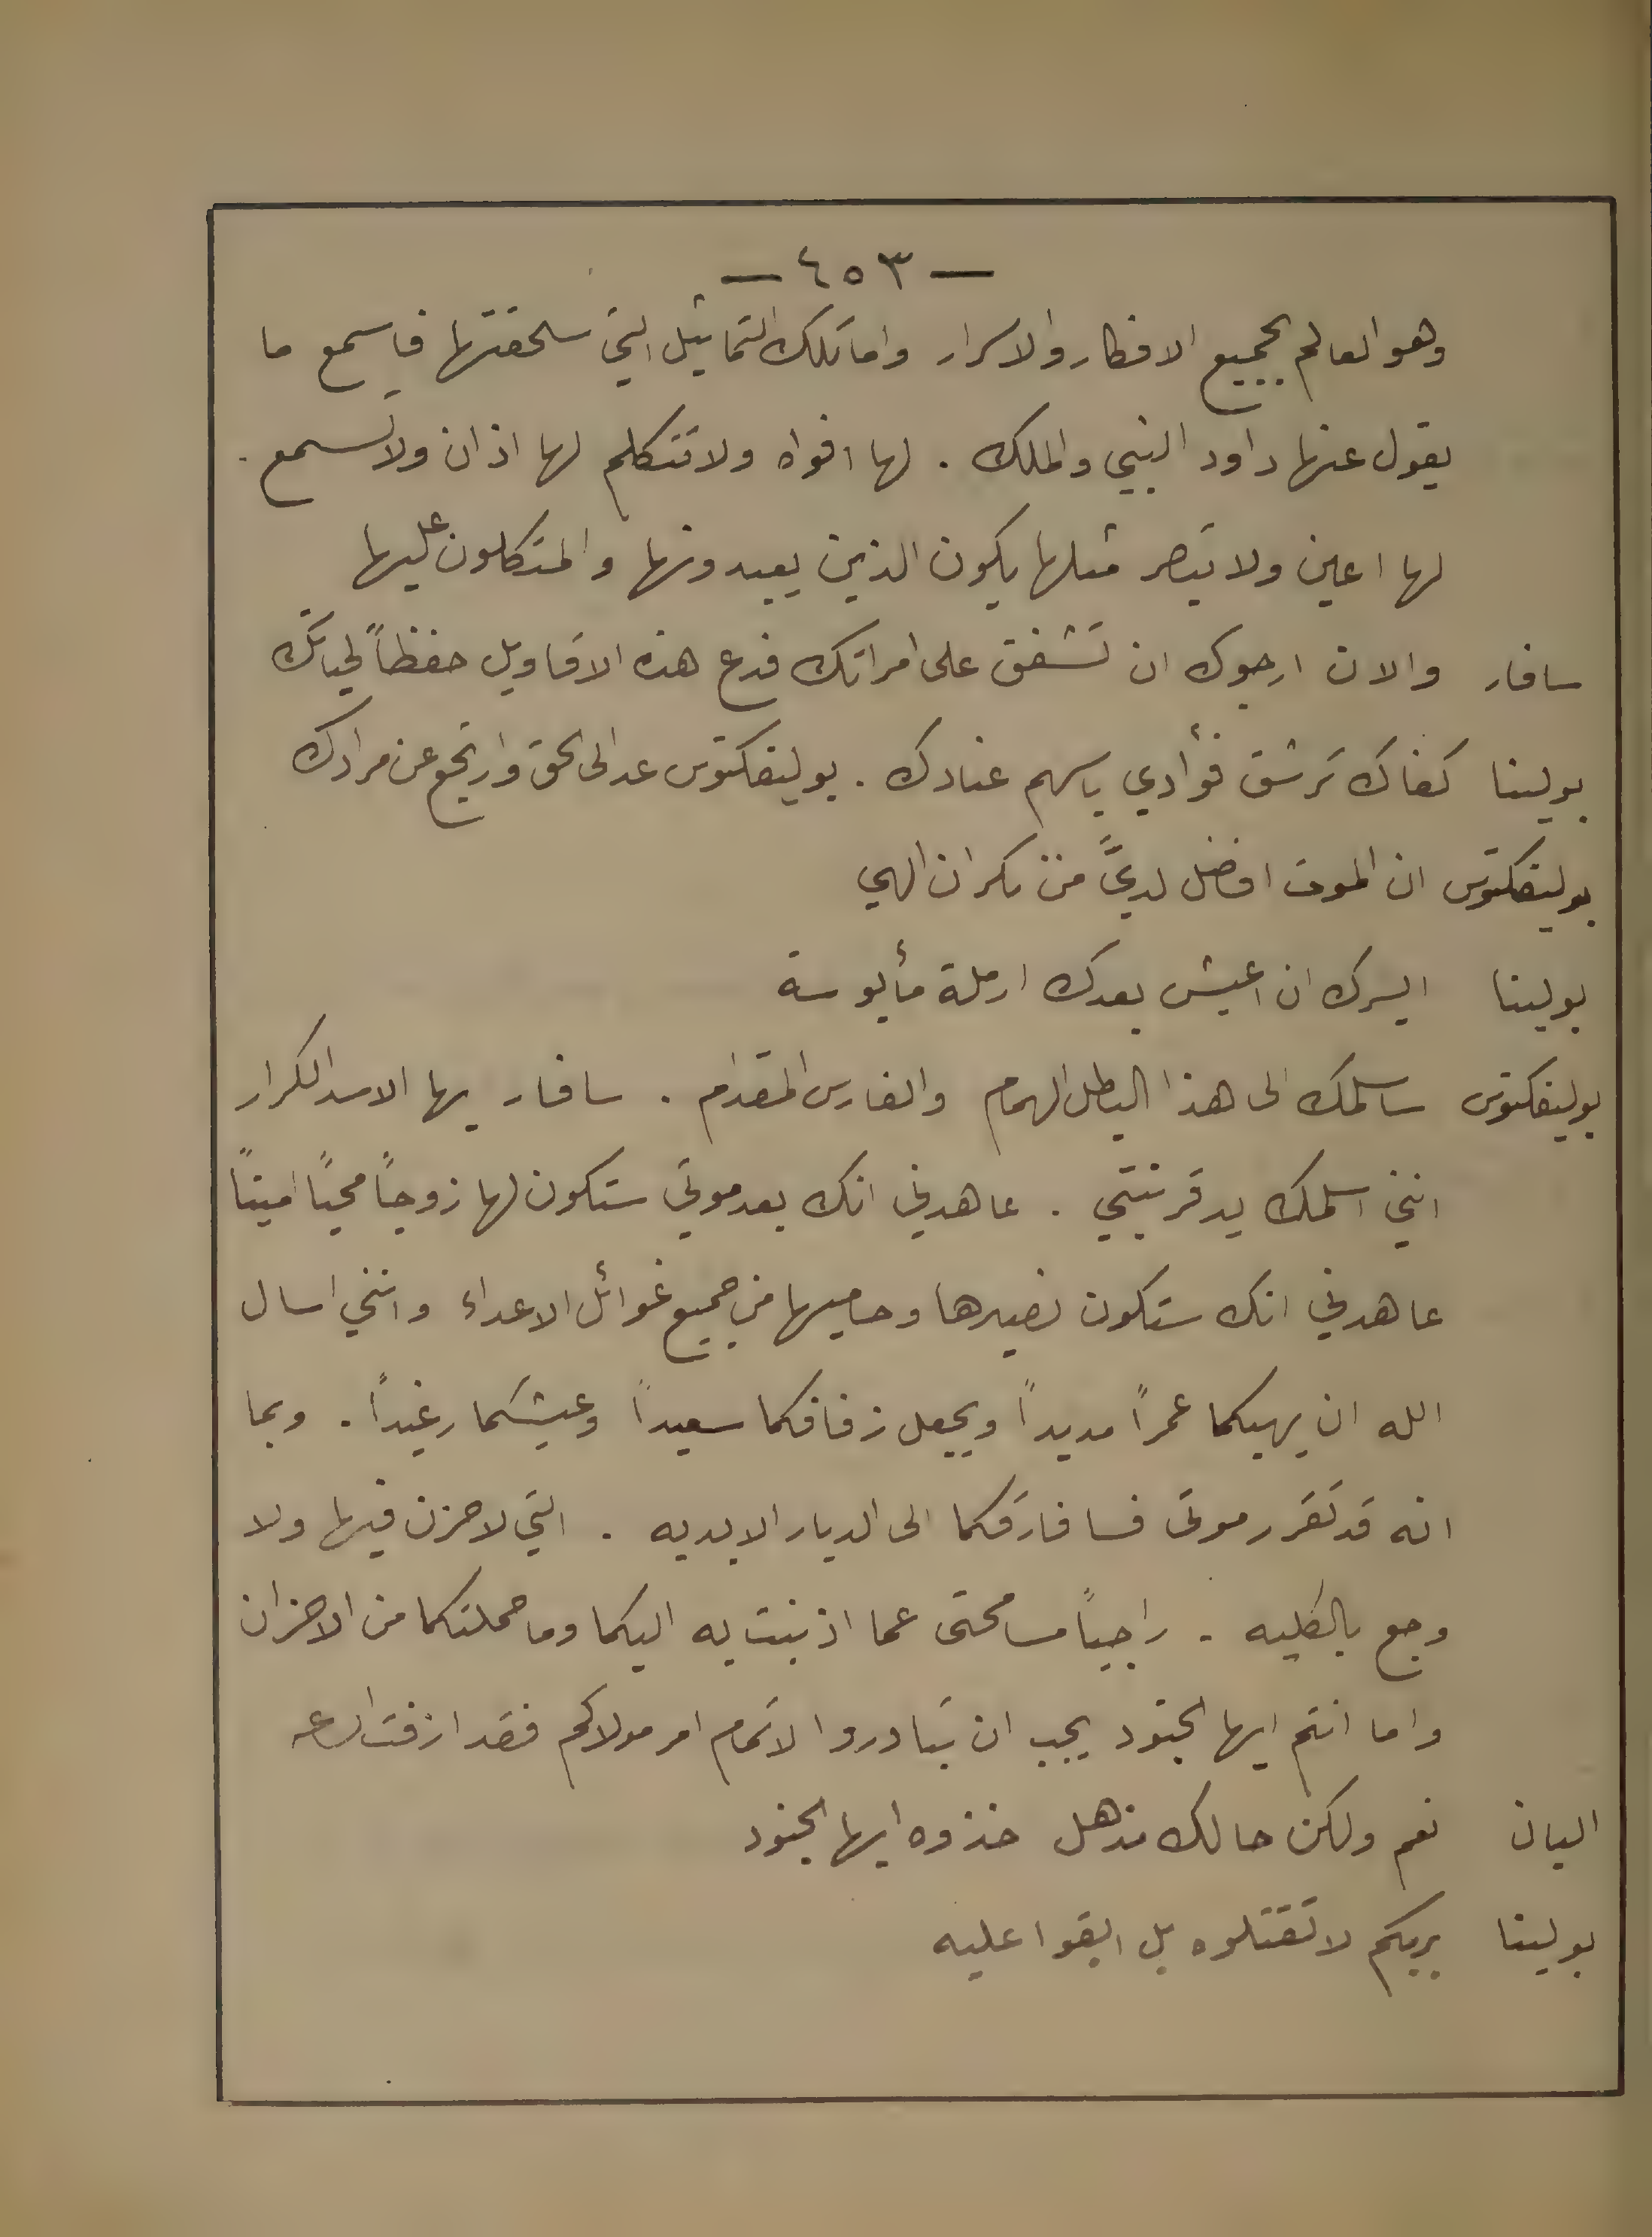 — ٤٥٣ —
وهو العالم بجميع الافكار والاسرار واما تلك التماثيل التي سلحقتها فاسمع ما
يقول عنها داود النبي والملك . لها افواه ولا تتكلم لها اذان ولا تسمع .
لها اعين ولا تبصر مثلها يكون الذين يعبدونها والمتكلون عليها
سافار والان ارجوك ان تشفق على امراتك فدع هذه الاقاويل حفظاً لحياتك
بولينا كفاك ترشق فؤادي باسهم عنادك . بوليفكتوس عد الى الحق وارتجع عن مرادك
بوليفكتوس ان الموت افضل لديَّ من نكران الهي
بولينا ايسرك ان اعيش بعدك ارملة مأيوسة
بوليفكتوس ساسلمك الى هذا البطل الهمام والفارس المقدام . سافار يها الاسد الكرار
انني اسلمك يد قرينتي . عاهدني انك بعد موتي ستكون لها زوجاً محباً اميناً
عاهدني انك ستكون نصيرها وحاميها من جميع غوائل الاعداء وانني اسال
الله ان يهبكما عمراً مديداً ويجعل زفافكما سعيداً وعيشكما رغيداً . وبما
انه قد تقرر موتى فسافارقكما الى الديار الابديه . التي لا حزن فيها ولا
وجع بالكليه . راجياً مسامحتى عما اذنبت به اليكما وما حملتكما من الاحزان
واما انتم ايها الجنود يجب ان تبادروا لاتمام امر مولاكم فقد ازفت الساعه
البان نعم ولكن حالك مذهل خذوه ايها الجنود
بولينا بربكم لا تقتلوه بل ابقوا عليه